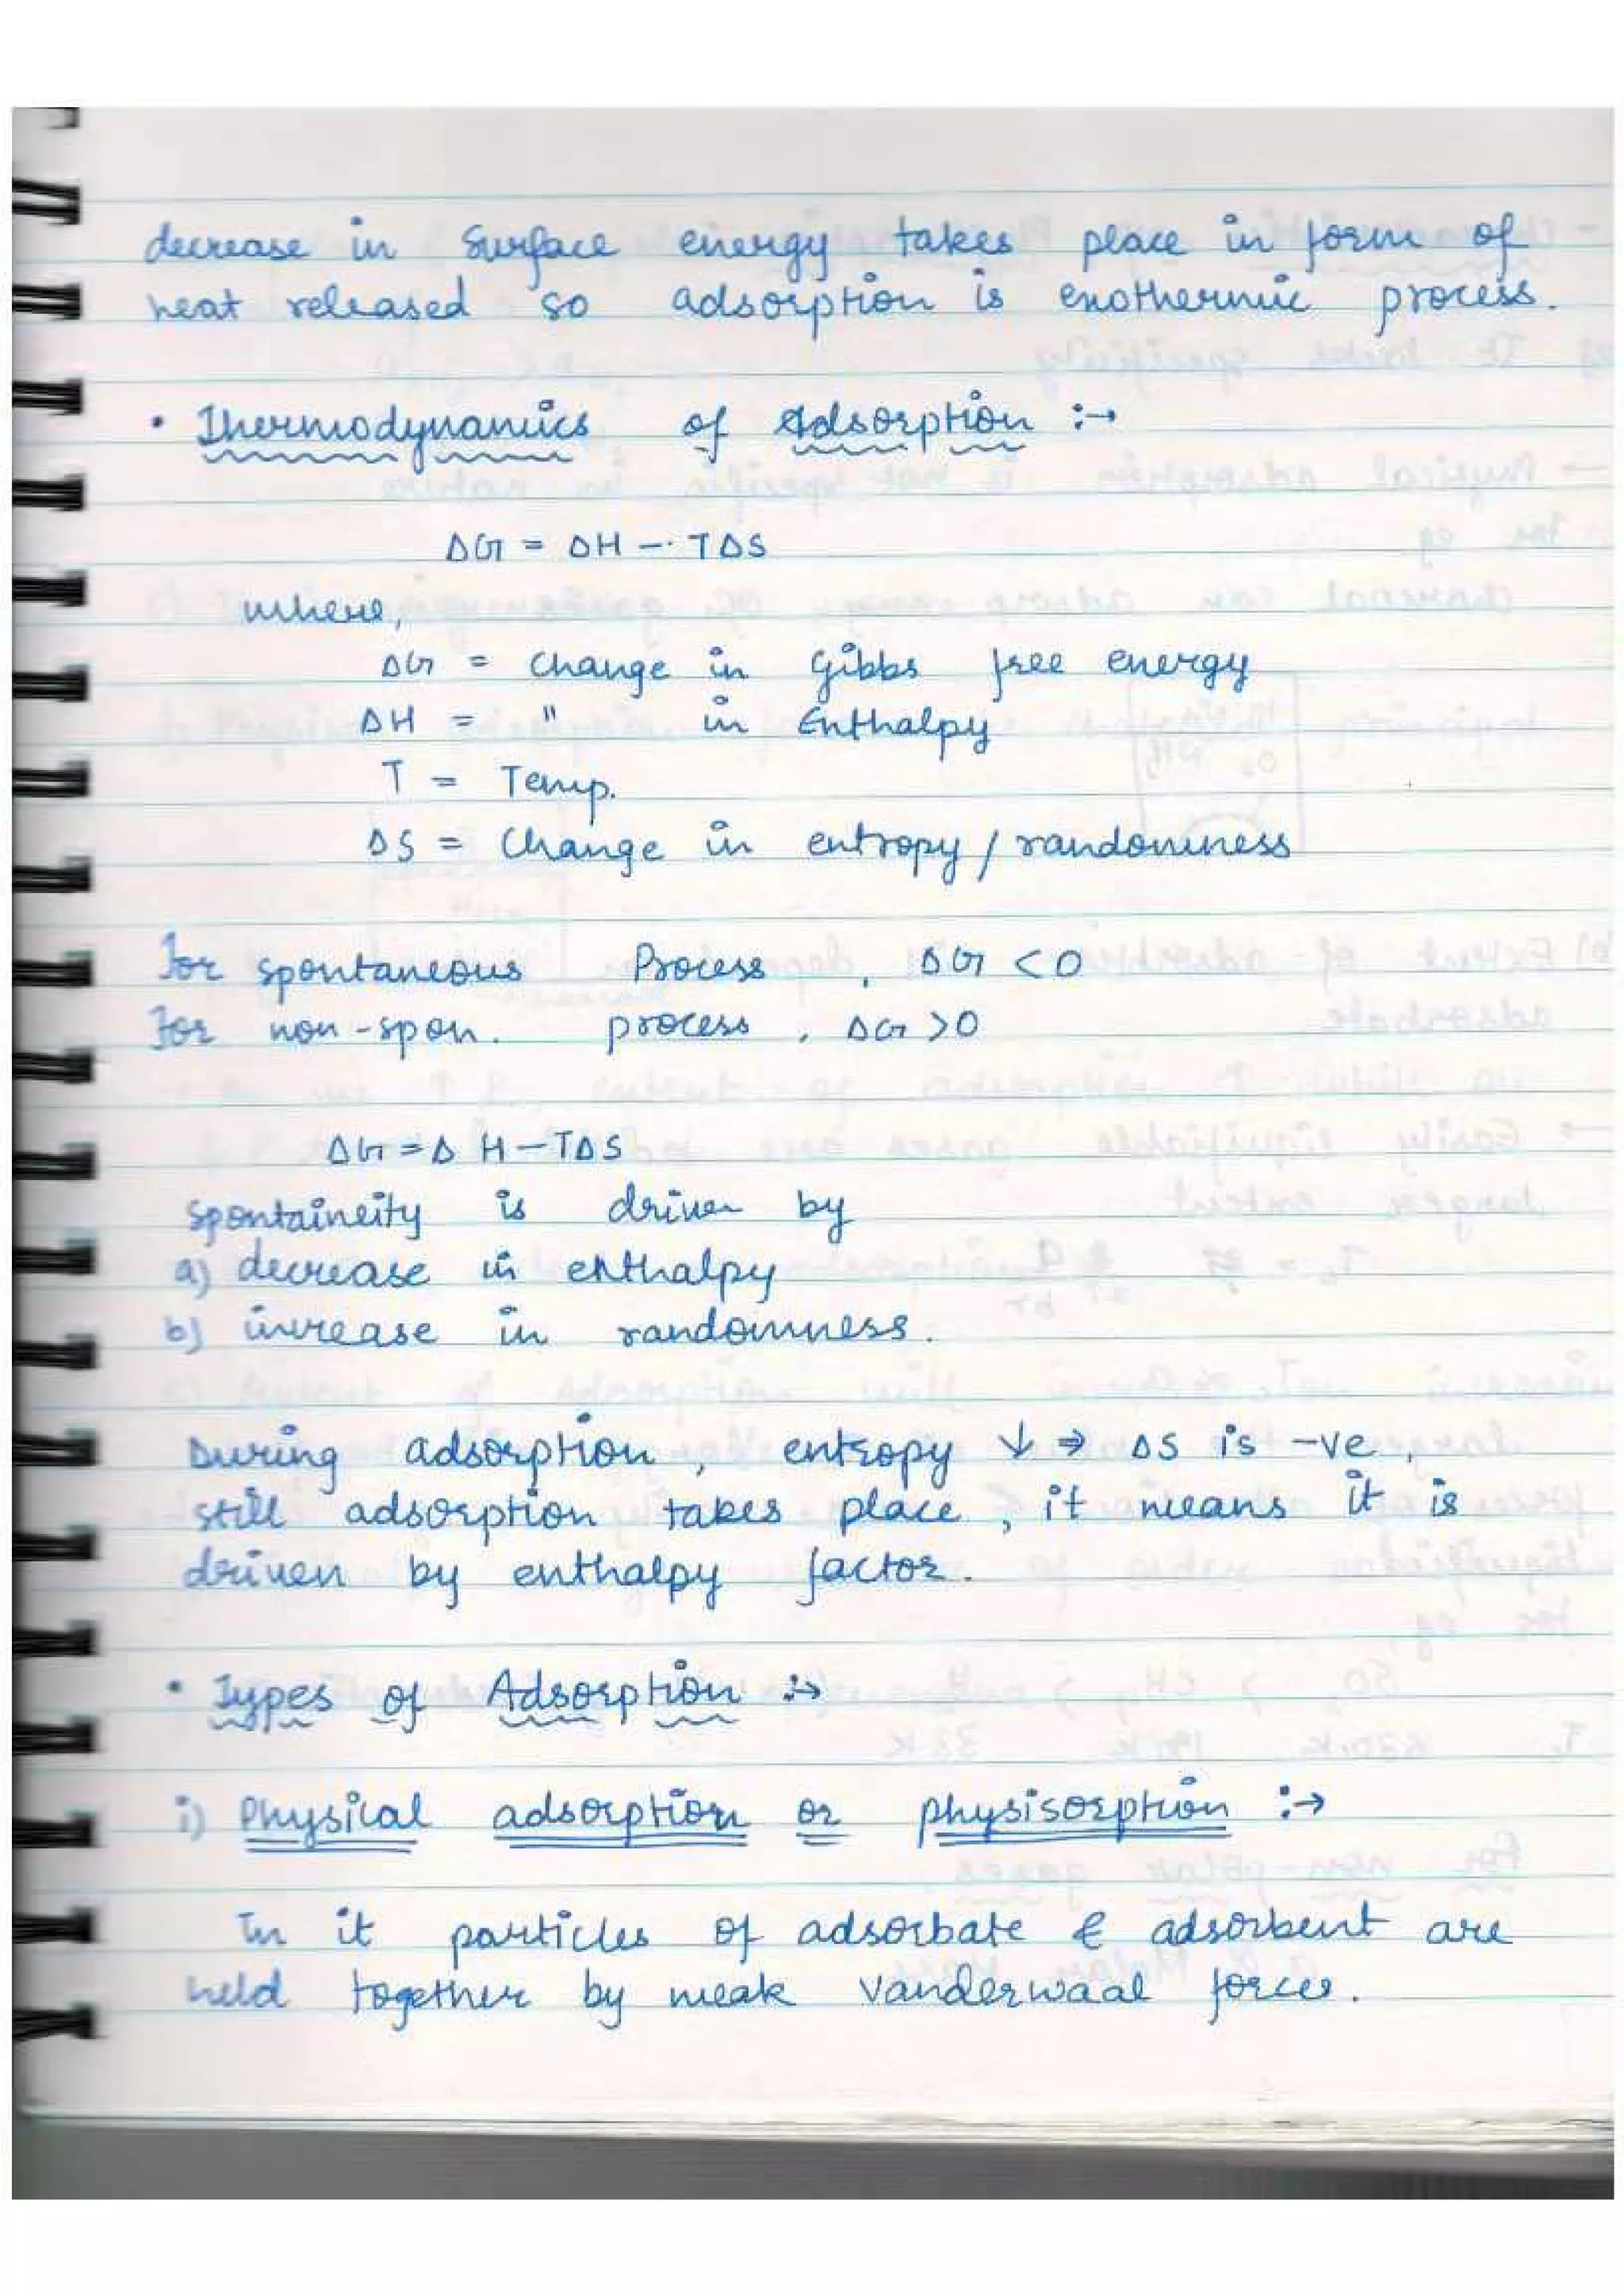 decrease in surface energy takes place in form of
heat released so adsorption is exothermic process.
• Thermodynamics of Adsorption :→
ΔG = ΔH – TΔS
where,
ΔG = change in Gibbs free energy
ΔH = " in Enthalpy
T = Temp.
ΔS = Change in entropy / randomness
For spontaneous Process , ΔG < 0
For non-spon. process , ΔG > 0
ΔG = Δ H – TΔS
Spontaineity is driven by
a) decrease in enthalpy
b) increase in randomness.
During adsorption, entropy ↓ ⇒ ΔS is -ve,
still adsorption takes place, it means it is
driven by enthalpy factor.
• Types of Adsorption :→
i) Physical adsorption or physisorption :→
In it particles of adsorbate & adsorbent are
held together by weak vanderwaal forces.